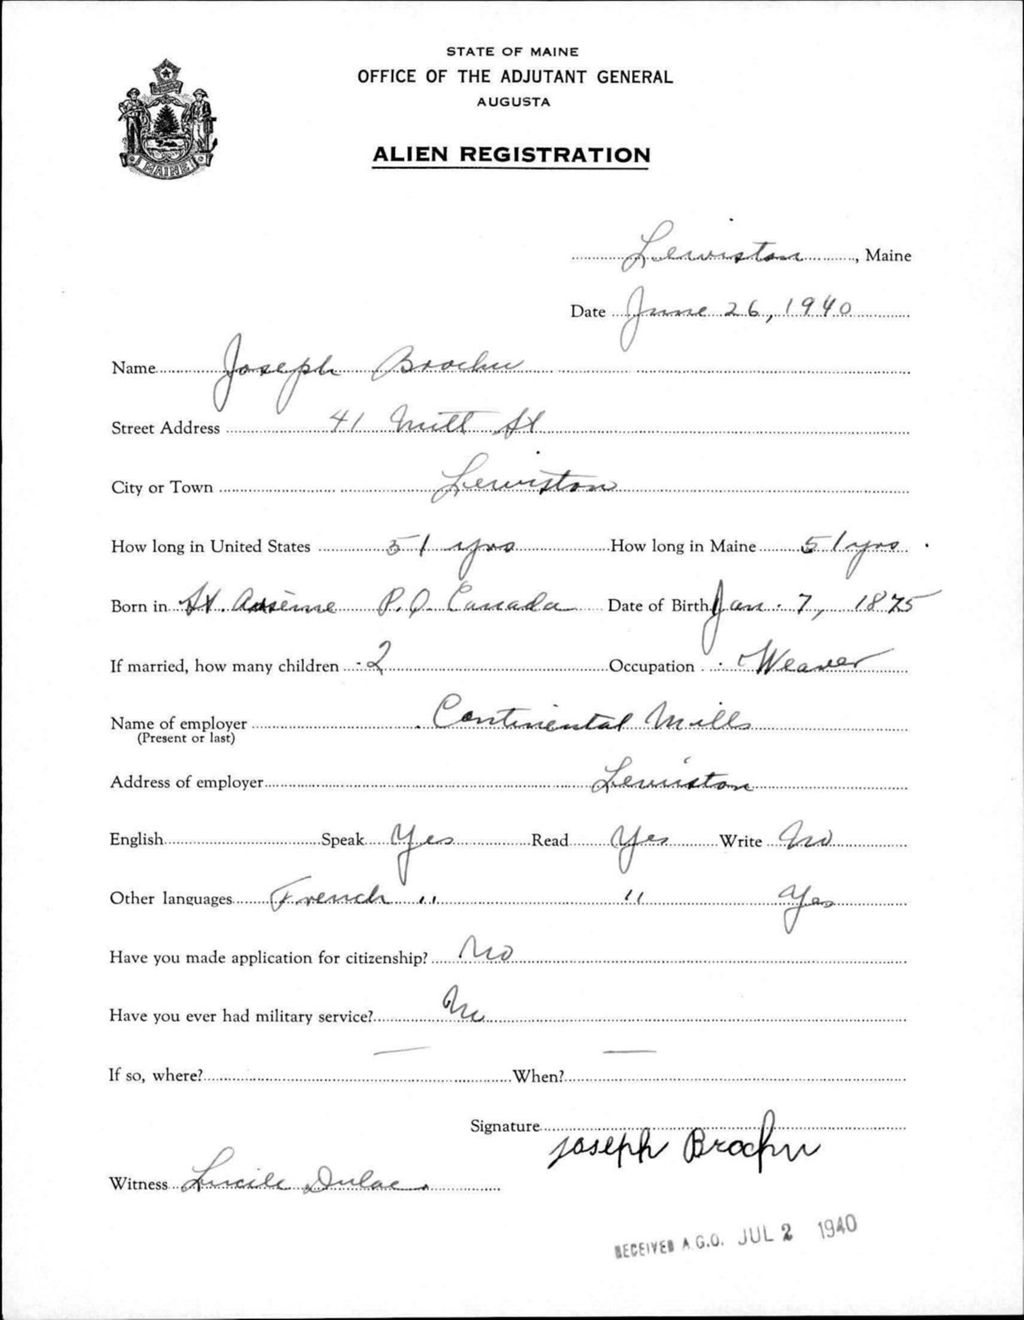 STATE OF MAINE
OFFICE OF THE ADJUTANT GENERAL
AUGUSTA
ALIEN REGISTRATION
MAINE
Lewiston, Maine
Date June 26, 1940
Name Joseph Brochu
Street Address 41 Mill St
City or Town Lewiston
How long in United States 51 yrs How long in Maine 51 yrs.
Born in St. Arsène P.Q. Canada Date of Birth Jan. 7, 1875
If married, how many children 2 Occupation Weaver
Name of employer Continental Mills
(Present or last)
Address of employer Lewiston
English Speak Yes Read Yes Write No
Other languages French " " Yes
Have you made application for citizenship? No
Have you ever had military service? No
If so, where? — When? —
Signature Joseph Brochu
Witness Lucile Dulac
RECEIVED A.G.O. JUL 2 1940